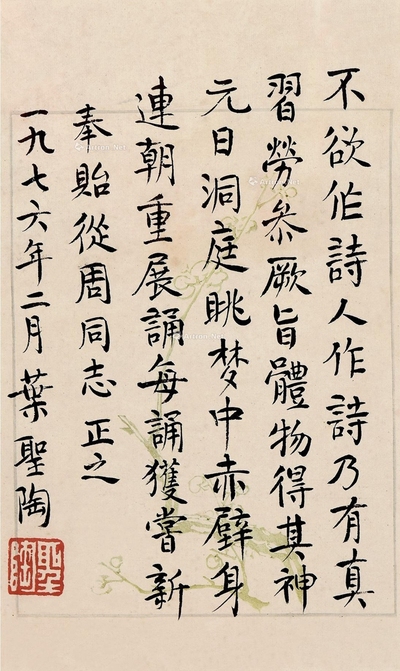 不欲作詩人作詩乃有真
習勞參厥旨體物得其神
元日洞庭眺梦中赤壁身
連朝重展誦每誦獲嘗新
奉貽從周同志正之
一九七六年二月葉聖陶
聖陶